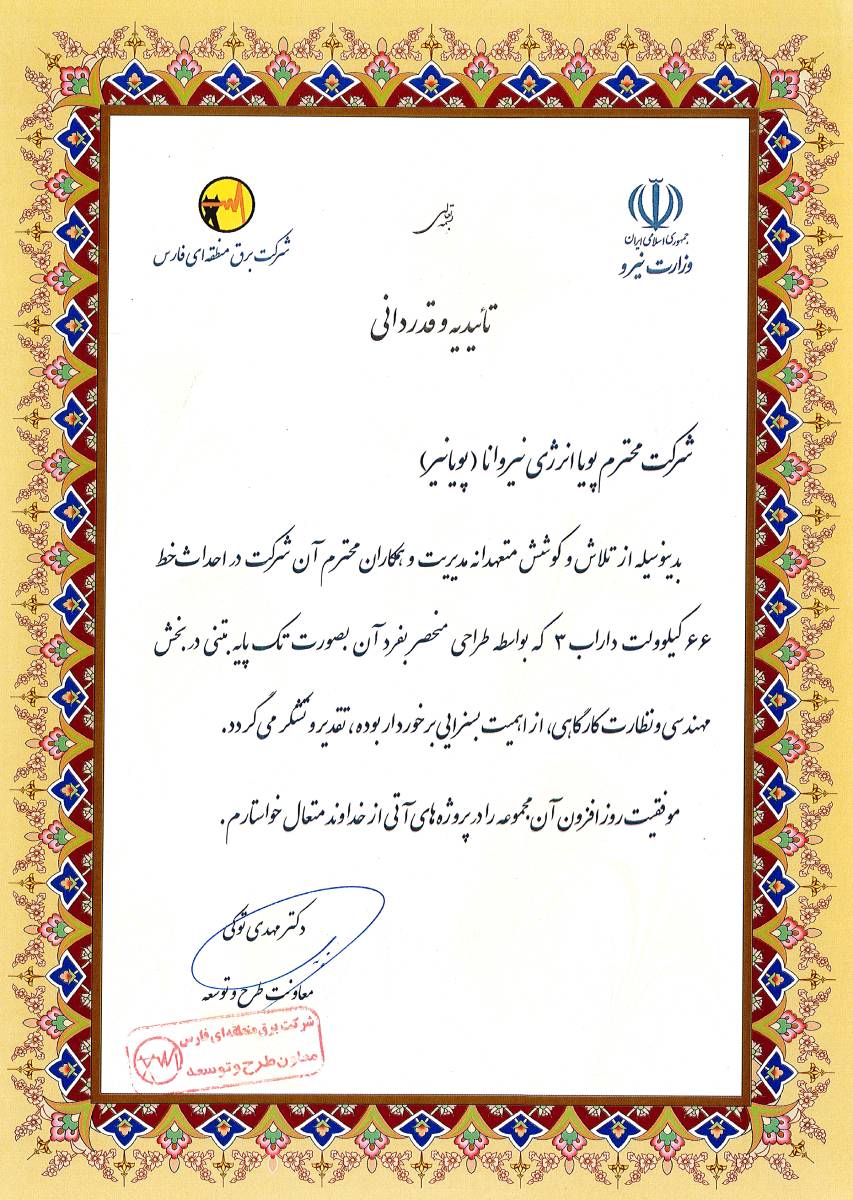 بسمه تعالی
جمهوری اسلامی ایران
وزارت نیرو
شرکت برق منطقه ای فارس
تأئیدیه و قدردانی
شرکت محترم پویا انرژی نیروانا (پویانیر)
بدینوسیله از تلاش و کوشش متعهدانه مدیریت و همکاران محترم آن شرکت در احداث خط
۶۶ کیلوولت داراب ۳ که بواسطه طراحی منحصر بفرد آن بصورت تک پایه بتنی در بخش
مهندسی و نظارت کارگاهی، از اهمیت بسزایی برخوردار بوده، تقدیر و تشکر می گردد.
موفقیت روز افزون آن مجموعه را در پروژه های آتی از خداوند متعال خواستارم.
دکتر مهدی توکی
معاونت طرح و توسعه
شرکت برق منطقه ای فارس
معاون طرح و توسعه